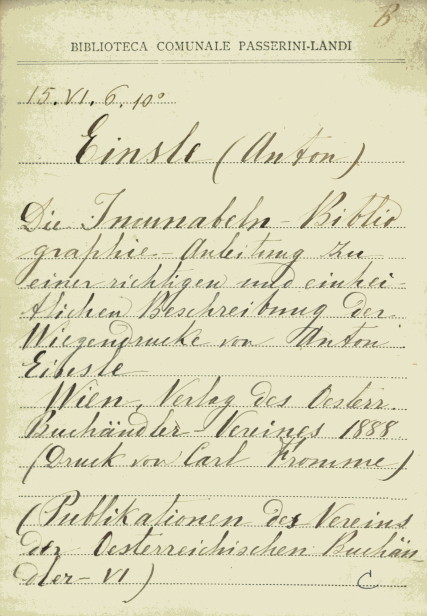 B
BIBLIOTECA COMUNALE PASSERINI-LANDI
15.VI.6.10°
Einsle (Anton)
Die Incunabeln-Biblio
graphie-Anleitung zu
einer richtigen und einhei-
tlichen Beschreibung der
Wiegendrucke von Anton
Einsle
Wien, Verlag des Oesterr.
Buchändler-Vereines 1888
(Druck von Carl Fromme)
(Publikationen des Vereins
der Oesterreichischen Buchän
dler-VI)
C